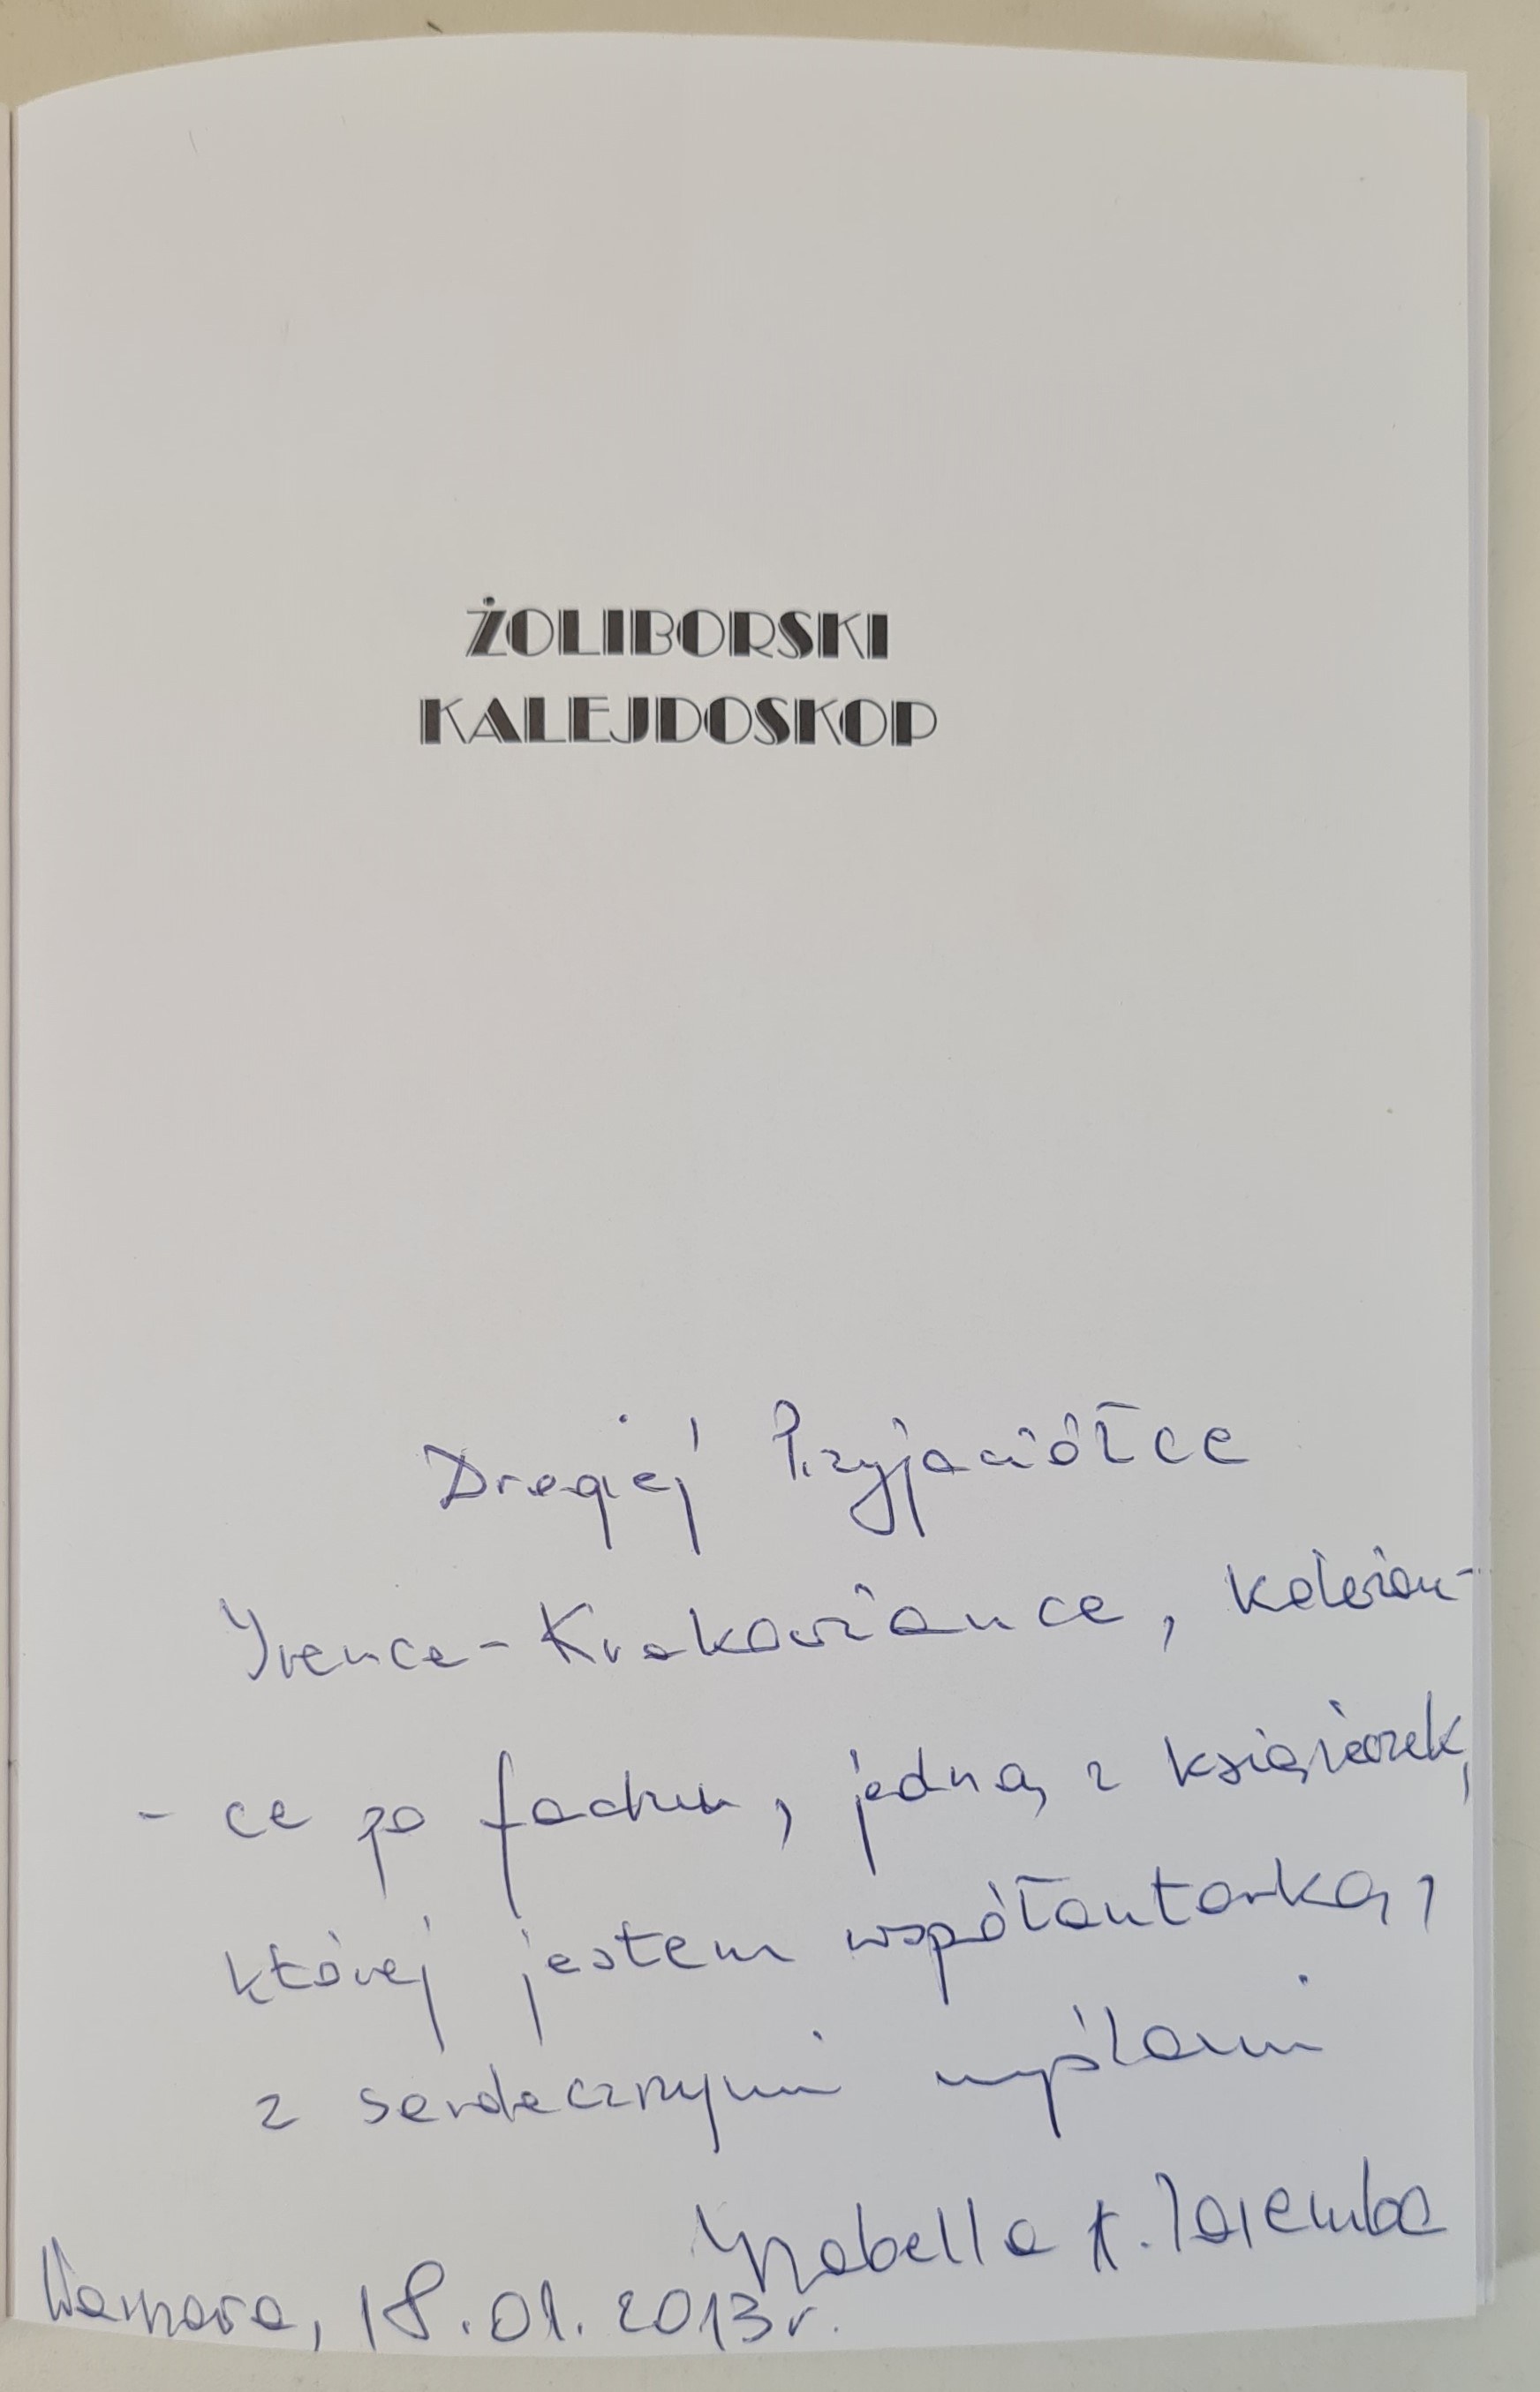 ŻOLIBORSKI
KALEJDOSKOP
Drogiej Przyjaciółce
Irence-Krakowiance, koleżan-
- ce po fachu, jedną z książeczek,
której jestem współautorką,
z serdecznymi myślami
Izabella K. Zaremba
Warszawa, 18.01.2013r.